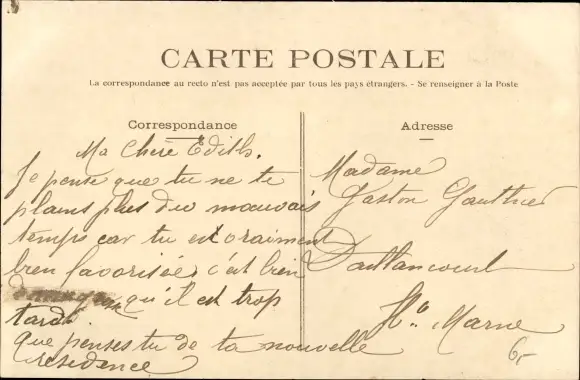 CARTE POSTALE
La correspondance au recto n'est pas acceptée par tous les pays étrangers. - Se renseigner à la Poste
Correspondance
Ma Chère Edith.
Je pense que tu ne te
plains plus du mauvais
temps car tu es vraiment
bien favorisée c'est bien
qu'il est trop
tard.
Que penses tu de ta nouvelle
residence
Adresse
Madame
Gaston Gauthier
Daillancourt
Hte Marne
6,-